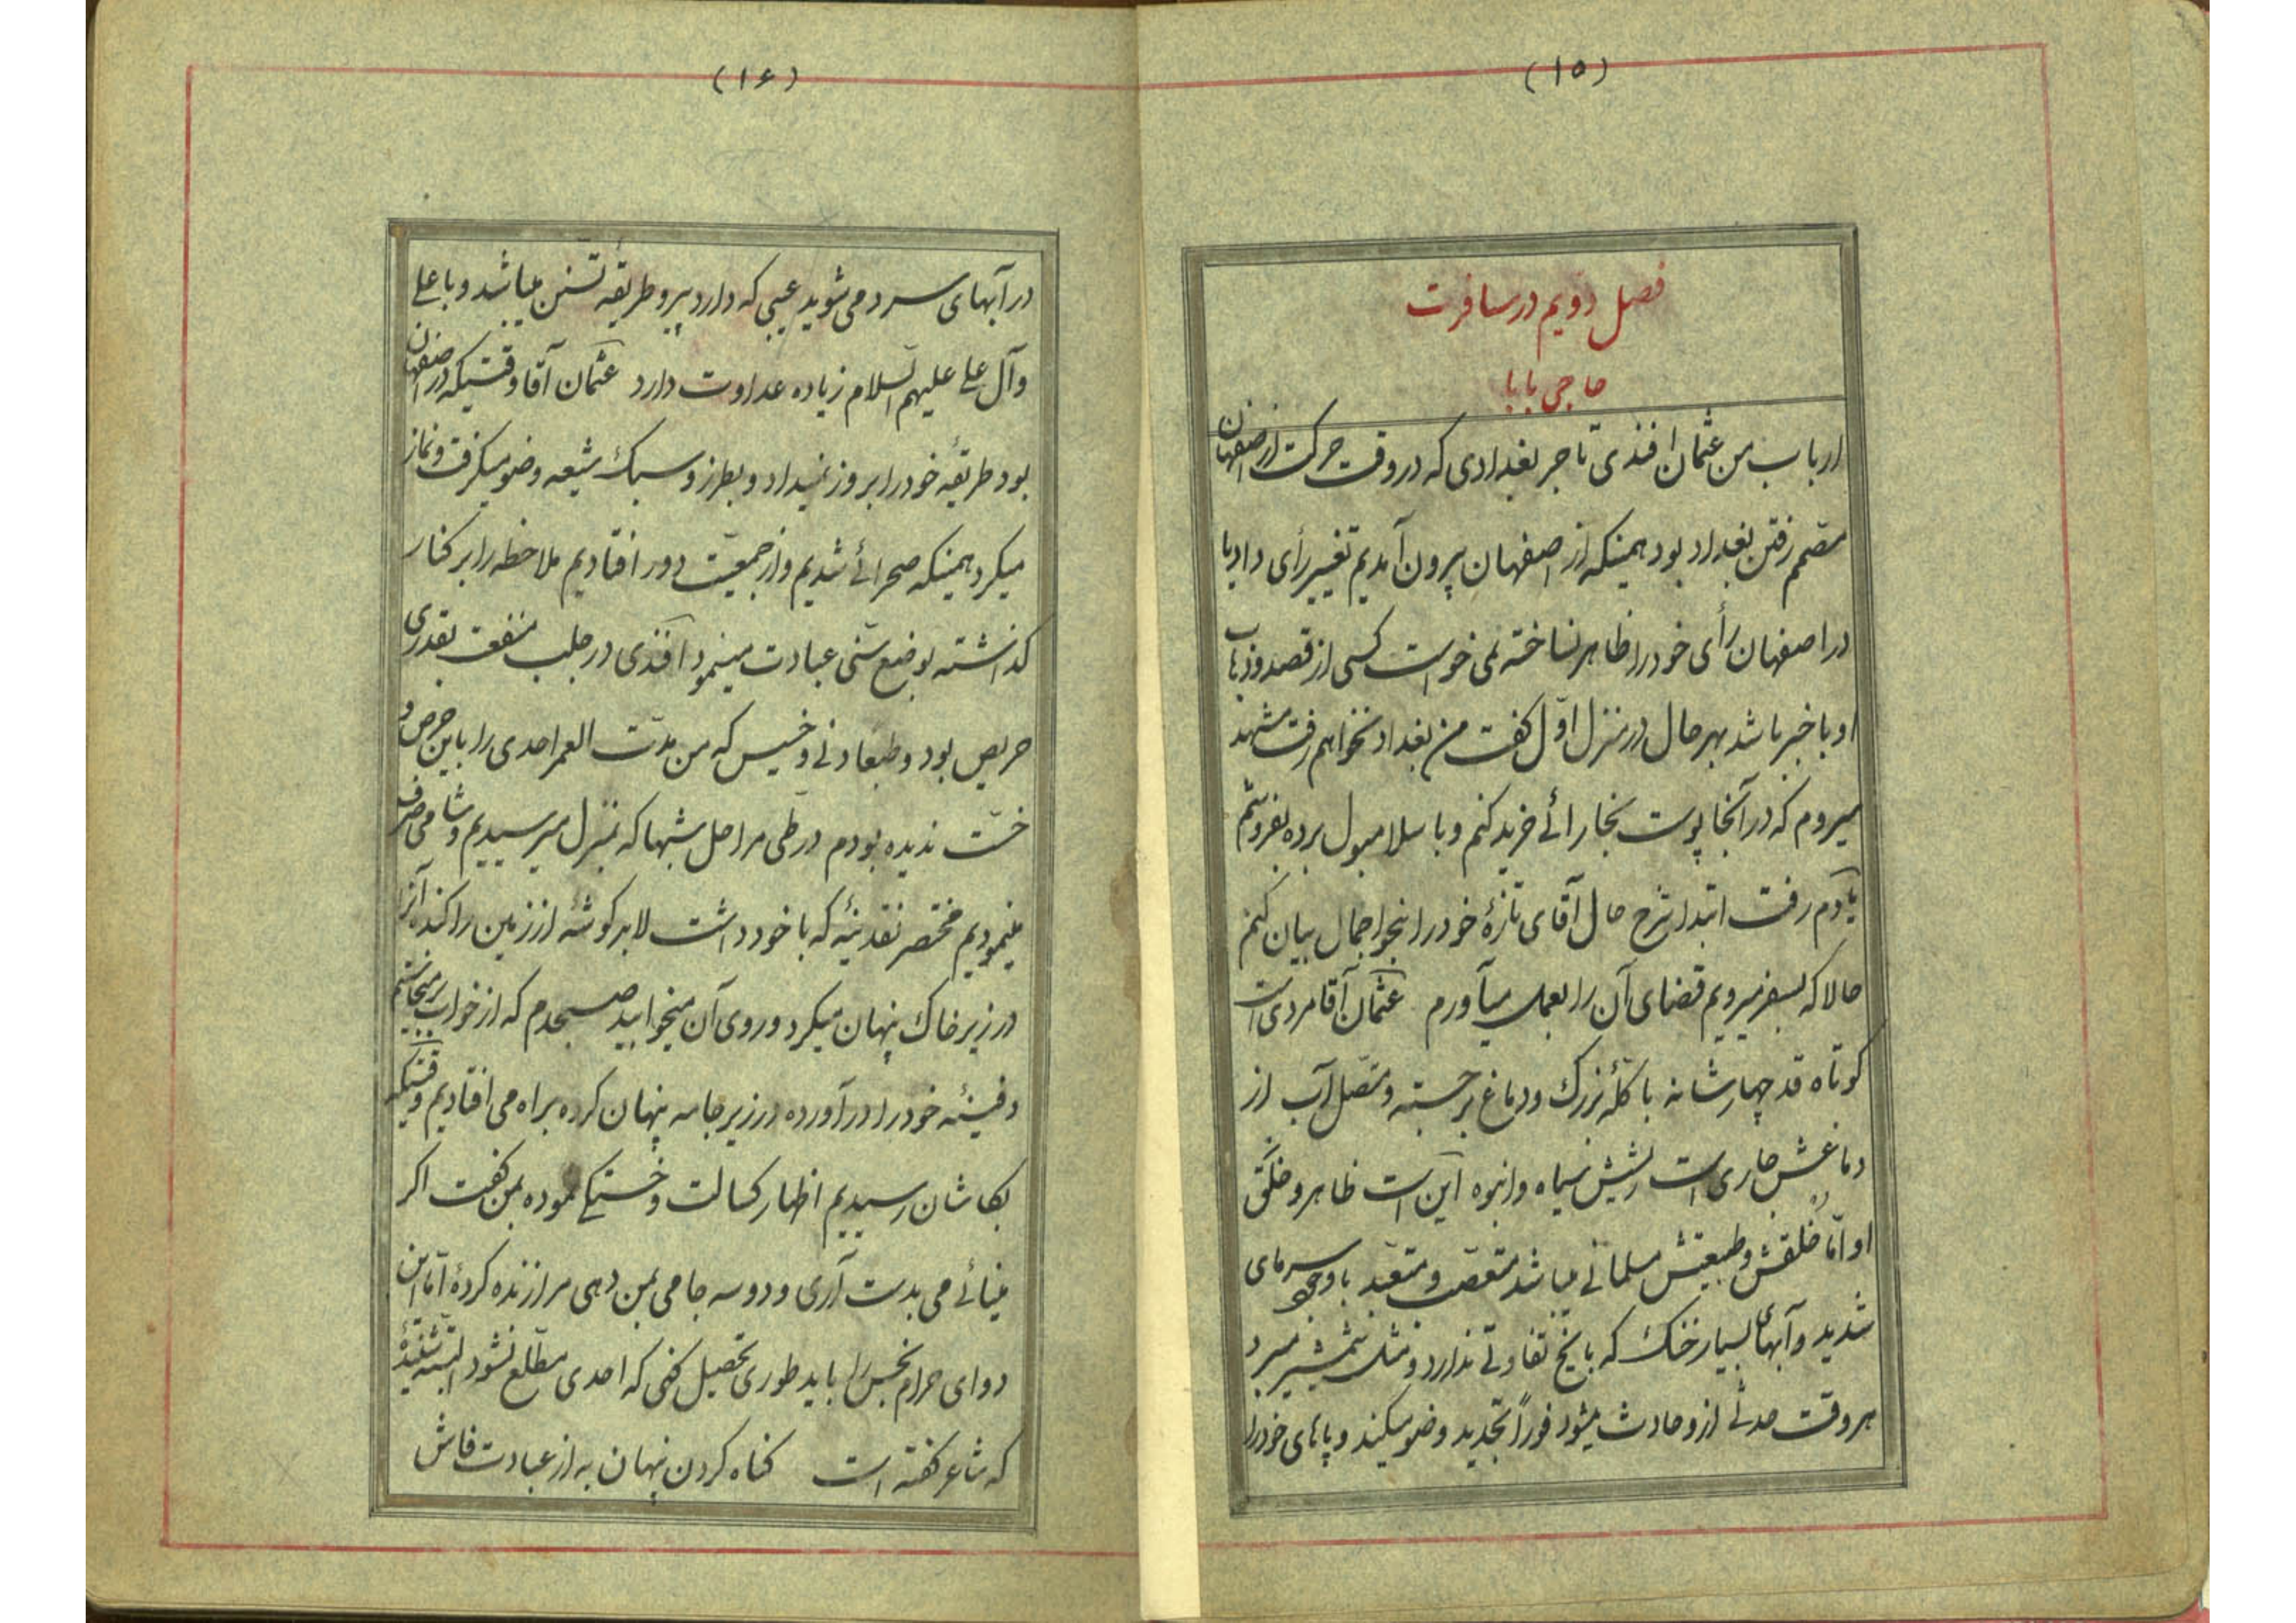 (۱۵)
فصل دویم در مسافرت
حاجی بابا
ارباب من عثمان افندی تاجر بغدادی که در وقت حرکت از اصفهان
مصمم رفتن بغداد بود همینکه از اصفهان بیرون آمدیم تغییر رأی داد یا
در اصفهان رأی خود را ظاهر نساخته نمی خواست کسی از قصد و ذهاب
او باخبر باشد بهر حال در منزل اوّل گفت من بغداد نخواهم رفت مشهد
میروم که در آنجا پوست بخارائی خرید کنم و باسلامبول برده بفروشم
یادم رفت ابتدا شرح حال آقای تازهٔ خود را بنحو اجمال بیان کنم
حالا که بسفر میرویم قضای آن را بعمل میآورم عثمان آقا مردی است
کوتاه قد چهارشانه با کلّهٔ بزرک و دماغ برجسته و متصل آب از
دماغش جاری است ریشش سیاه و انبوه این است ظاهر و خلق
او امّا خلقش و طبیعتش مسلمانی میباشد متعصّب و متعبّد با وجود سرمای
شدید و آبهای بسیار خنک که با یخ تفاوتی ندارد و مثل شمشیر میبرد
هر وقت حدثی ازو حادث میشود فوراً تجدید وضو میکند و پاهای خود را
(۱۶)
در آبهای سرد می شوید عیبی که دارد پیرو طریقهٔ تسنّن میباشد و با علی
و آل علی علیهم السّلام زیاده عداوت دارد عثمان آقا وقتیکه در اصفهان
بود طریقهٔ خود را بروز نمیداد و بطرز و سبک شیعه وضو میکرفت و نماز
میکرد همینکه صحرائی شدیم و از جمعیّت دور افتادیم ملاحظه را بر کنار
کذاشته بوضع سنّی عبادت مینمود افندی در جلب منفعت بقدری
حریص بود و طبعاً دنی و خسیس که من مدّت العمر احدی را باین حرص و
خسّت ندیده بودم در طی مراحل شبها که بمنزل میرسیدیم و شامی صرف
مینمودیم مختصر نقدینهٔ که با خود داشت لابد کوشهٔ از زمین را کنده آنرا
در زیر خاک پنهان میکرد و روی آن میخوابید صبحدم که از خواب برمیخاستیم
دفینهٔ خود را در آورده در زیر جامه پنهان کرده براه می افتادیم وقتیکه
بکاشان رسیدیم اظهار کسالت و خستکی نموده بمن کفت اکر
مینائی می بدست آری و دو سه جامی بمن دهی مرا زنده کردهٔ امّا این
دوای حرام نجس را باید طوری تحصیل کنی که احدی مطّلع نشود البتّه شنیدهٔ
که شاعر کفته است کناه کردن پنهان به از عبادت فاش